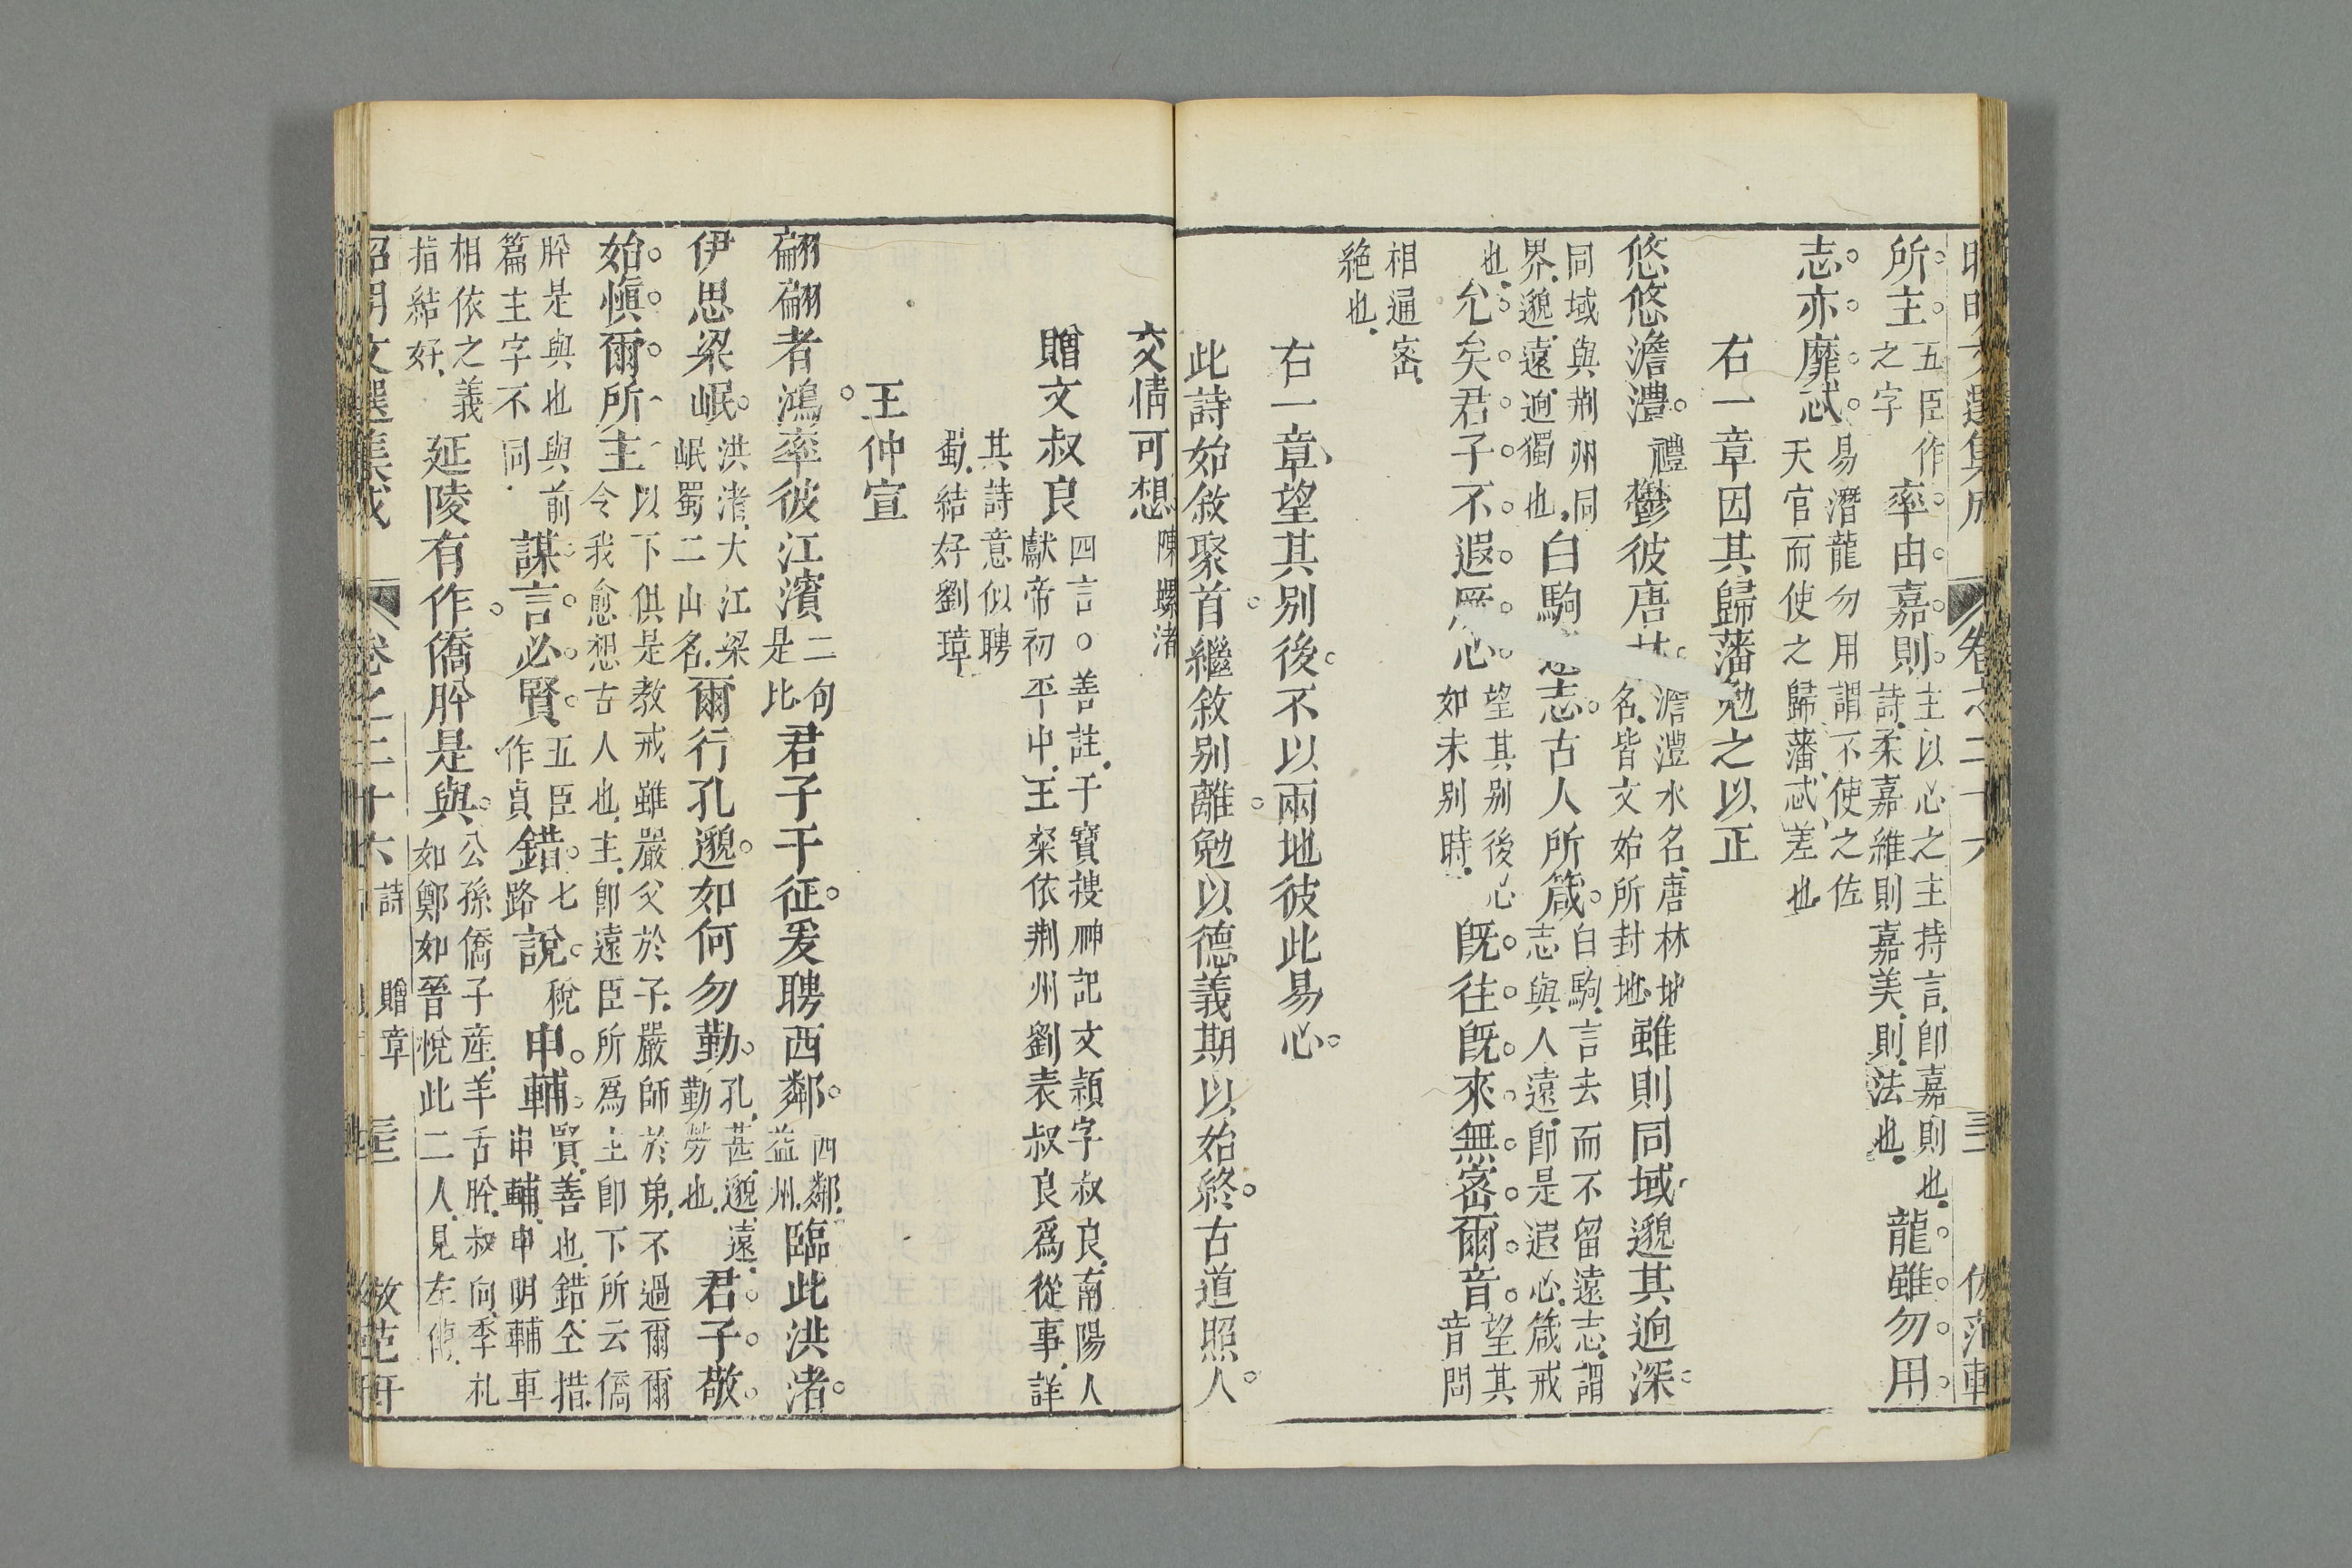 所主五臣作之字率由嘉則主以心之主持言卽嘉則也詩柔嘉維則嘉美則法也龍雖勿用
志亦靡忒易潛龍勿用謂不使之佐天官而使之歸藩忒差也
右一章因其歸藩勉之以正
悠悠澹澧禮鬱彼唐澹澧水名唐林地名皆文始所封地雖則同域邈其迥深
同域與荆州同界邈遠迥獨也白駒志古人所箴白駒言去而不留遠志謂志與人遠卽是遐心箴戒
也允矣君子不遐心望其別後心如未別時旣往旣來無密爾音望其音問
相通密絶也
右一章望其別後不以兩地彼此易心
此詩始敘聚首繼敘別離勉以德義期以始終古道照人
交情可想陳螺渚
贈文叔良四言○善註干寶搜神記文穎字叔良南陽人獻帝初平中王粲依荆州劉表叔良爲從事詳
其詩意似聘蜀結好劉璋
王仲宣
翩翩者鴻率彼江濱二句是比君子于征爰聘西鄰西鄰益州臨此洪渚
伊思梁岷洪渚大江梁岷蜀二山名爾行孔邈如何勿勤孔甚邈遠勤勞也君子敬
始愼爾所主以下俱是教戒雖嚴父於子嚴師於弟不過爾爾令我愈想古人也主卽遠臣所爲主卽下所云僑
肸是與也與前篇主字不同謀言必賢五臣作貞錯七路說稅申輔賢善也錯仝措申輔申明輔車
相依之義指結好延陵有作僑肸是與公孫僑子產羊舌肸叔向季札如鄭如晉悅此二人見左傳
昭明文選集成 卷之二十六 詩 贈章 三 倣范軒